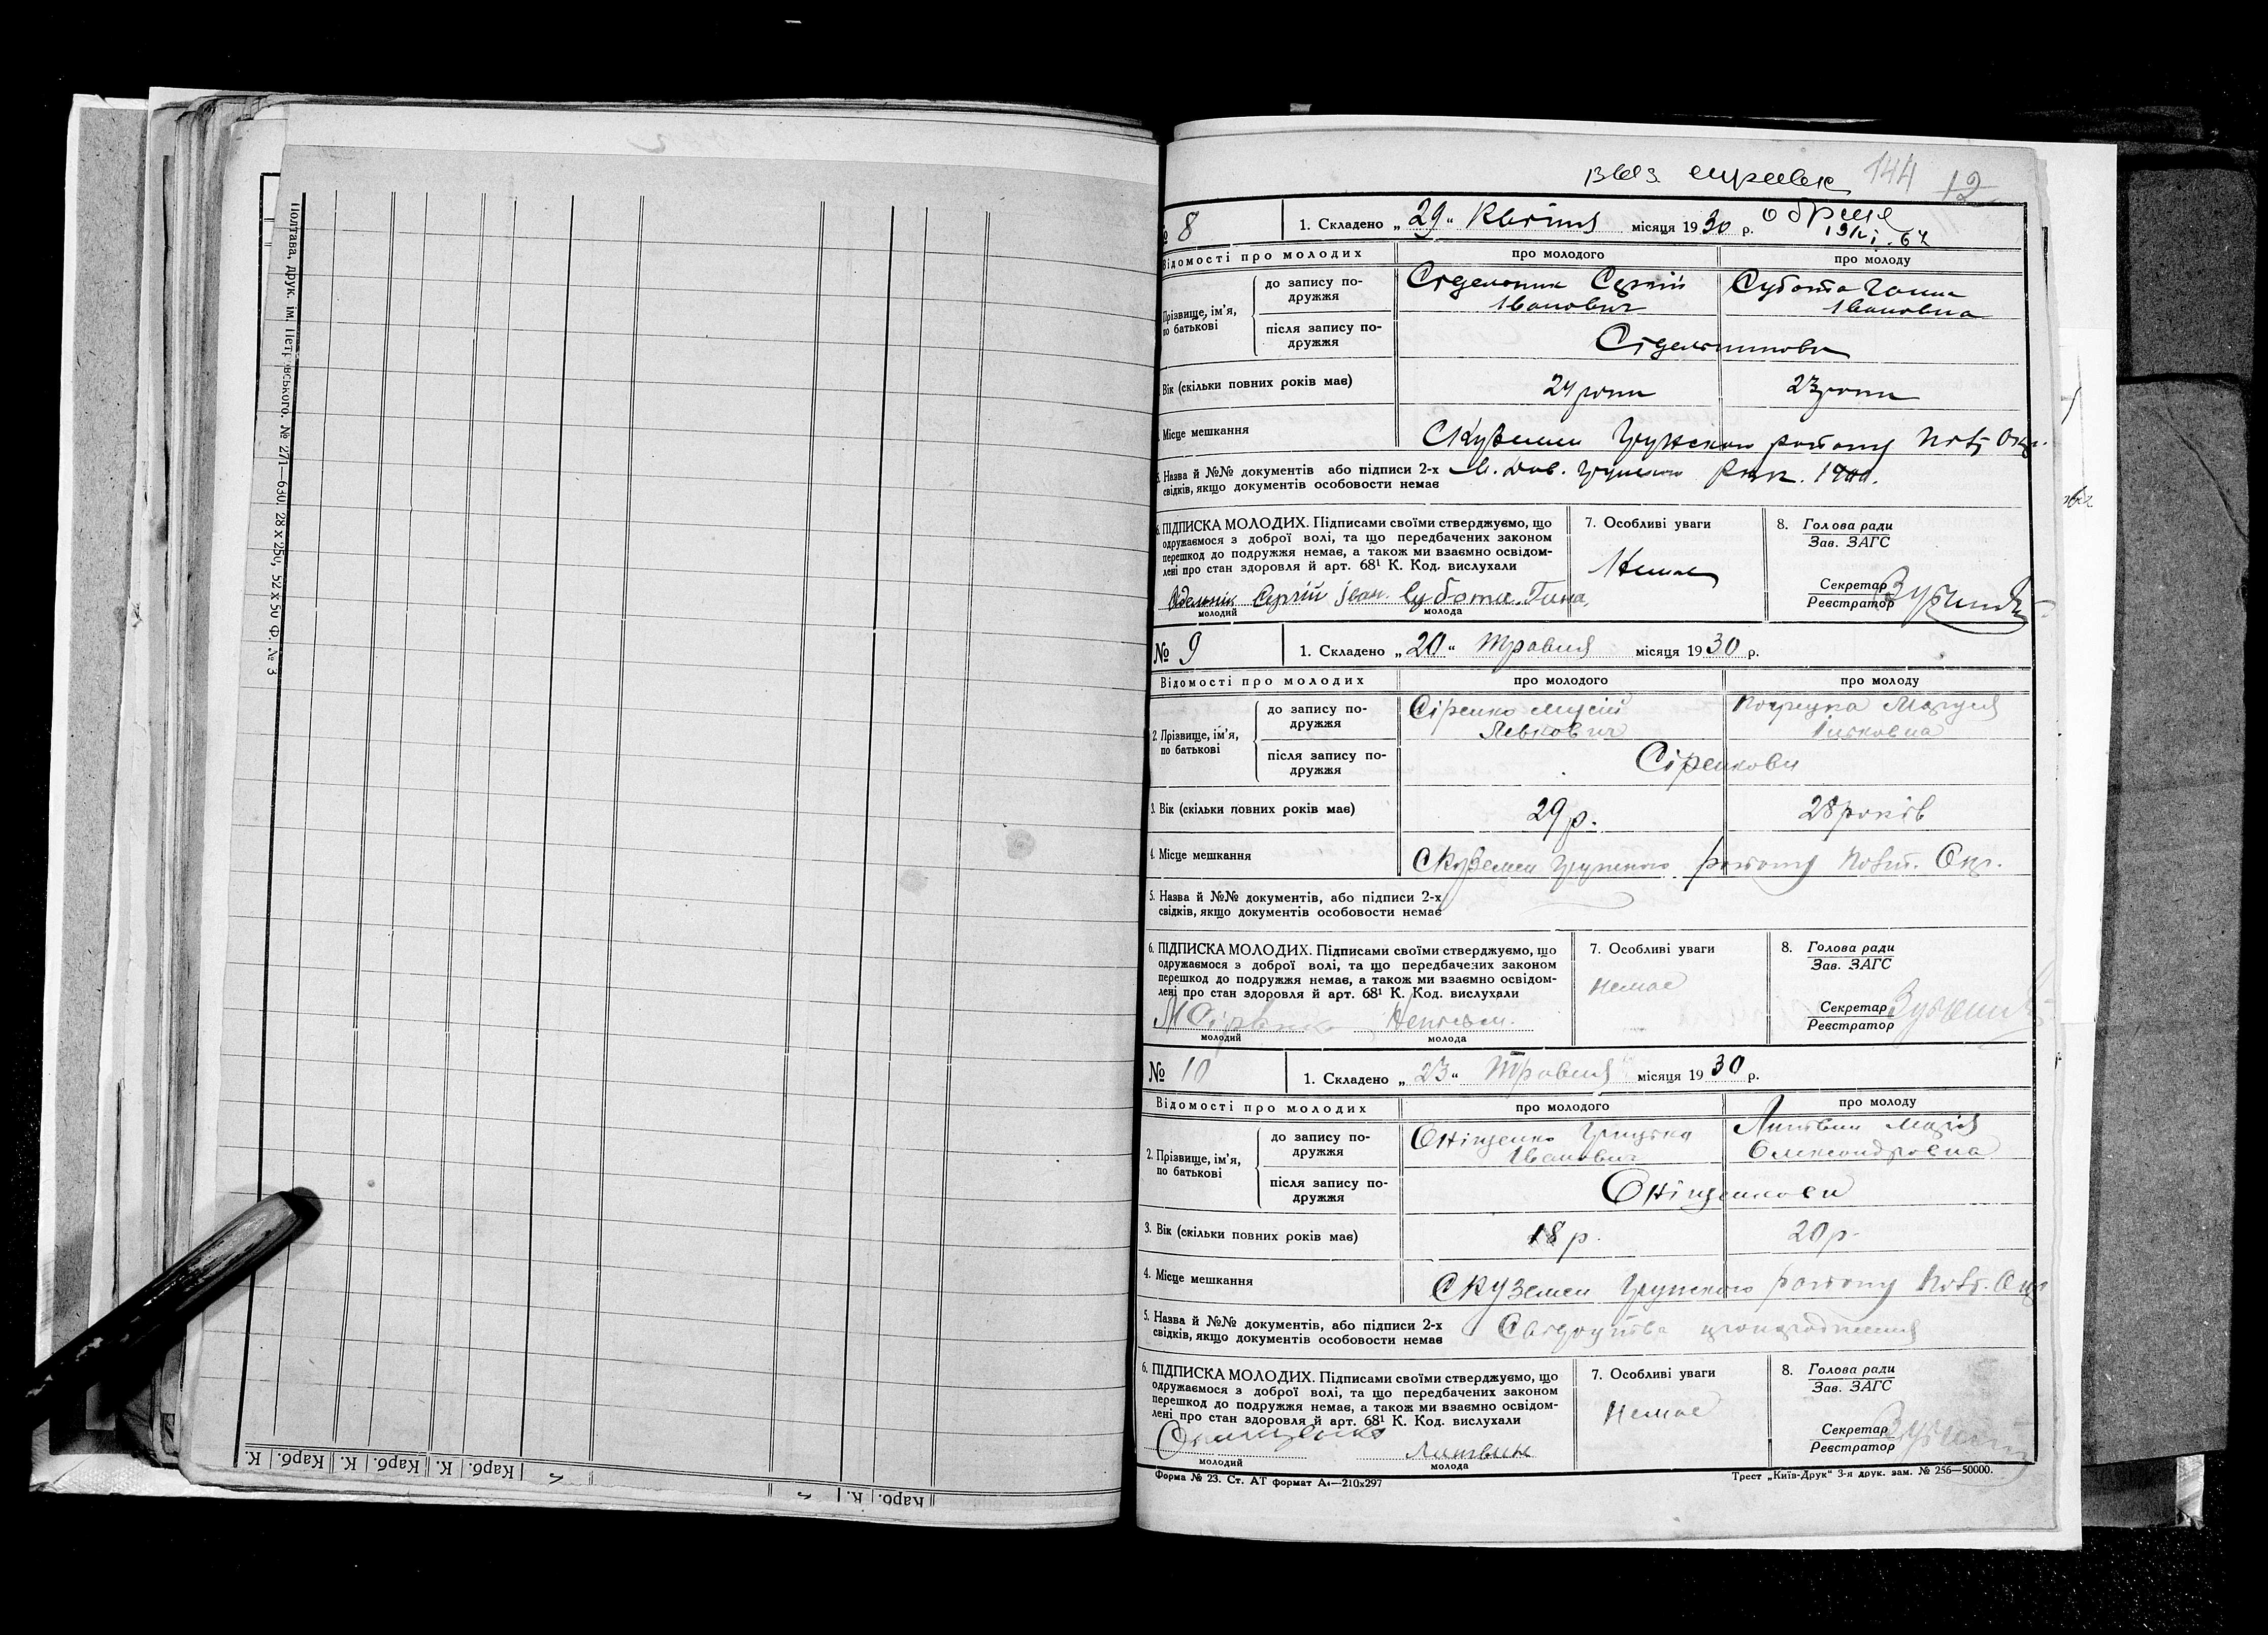 Полтава, друк. ім. Петровського. № 271—630. 28 х 250, 52 х 50 Ф. № 3
К. Карб. К. Карб. К. Карб.
К. Карб.
144 12
№ 8 1. Складено „29“ Квітня місяця 1930 р.
Відомості про молодих про молодого про молоду
Прізвище, ім’я, по батькові
до запису подружжя
Сідельник Сергій Іванович
Субота Ганна Івановна
після запису подружжя
Сідельникови
Вік (скільки повних років має) 24 роки 23 роки
Місце мешкання С Куземен Грунского району Полт. Окр.
Назва й №№ документів або підписи 2-х
свідків, якщо документів особовости немає
6. ПІДПИСКА МОЛОДИХ. Підписами своїми стверджуємо, що
одружаємося з доброї волі, та що передбачених законом
перешкод до подружжя немає, а також ми взаємно освідом-
лені про стан здоровля й арт. 68¹ К. Код. вислухали
Сергій Іван. Субота Ганна
молодий молода
7. Особливі уваги
Немає
8. Голова ради
Зав. ЗАГС
Секретар
Реєстратор
№ 9 1. Складено „20“ Травня місяця 1930 р.
Відомості про молодих про молодого про молоду
2. Прізвище, ім’я, по батькові
до запису подружжя
Сіренко Мусій Левкович
після запису подружжя
Сіренкови
3. Вік (скільки повних років має) 29 р. 28 років
4. Місце мешкання С Куземен Грунского району Полт. Окр.
5. Назва й №№ документів, або підписи 2-х
свідків, якщо документів особовости немає
6. ПІДПИСКА МОЛОДИХ. Підписами своїми стверджуємо, що
одружаємося з доброї волі, та що передбачених законом
перешкод до подружжя немає, а також ми взаємно освідом-
лені про стан здоровля й арт. 68¹ К. Код. вислухали
М Сіренко
молодий молода
7. Особливі уваги
немає
8. Голова ради
Зав. ЗАГС
Секретар
Реєстратор
№ 10 1. Складено „23“ Травня місяця 1930 р.
Відомості про молодих про молодого про молоду
2. Прізвище, ім’я, по батькові
до запису подружжя
Оніщенко Грицько Іванович
Литвин Марія Олександровна
після запису подружжя
Оніщенкови
3. Вік (скільки повних років має) 18 р. 20 р.
4. Місце мешкання С Куземен Грунского району Полт. Окр
5. Назва й №№ документів, або підписи 2-х
свідків, якщо документів особовости немає
6. ПІДПИСКА МОЛОДИХ. Підписами своїми стверджуємо, що
одружаємося з доброї волі, та що передбачених законом
перешкод до подружжя немає, а також ми взаємно освідом-
лені про стан здоровля й арт. 68¹ К. Код. вислухали
Онищенко Литвин
молодий молода
7. Особливі уваги
Немає
8. Голова ради
Зав. ЗАГС
Секретар
Реєстратор
Форма № 23. Ст. АТ формат А₄—210х297 Трест „Київ-Друк“ 3-я друк. зам. № 256—50000.